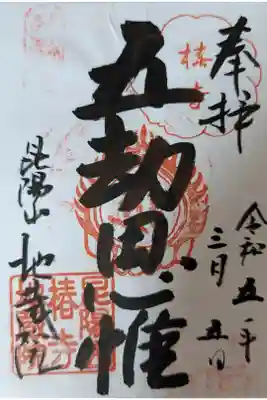 奉拝
令和五年
三月五日
五劫思惟
昆陽山地蔵院
椿寺
昆陽山
椿寺
地蔵院